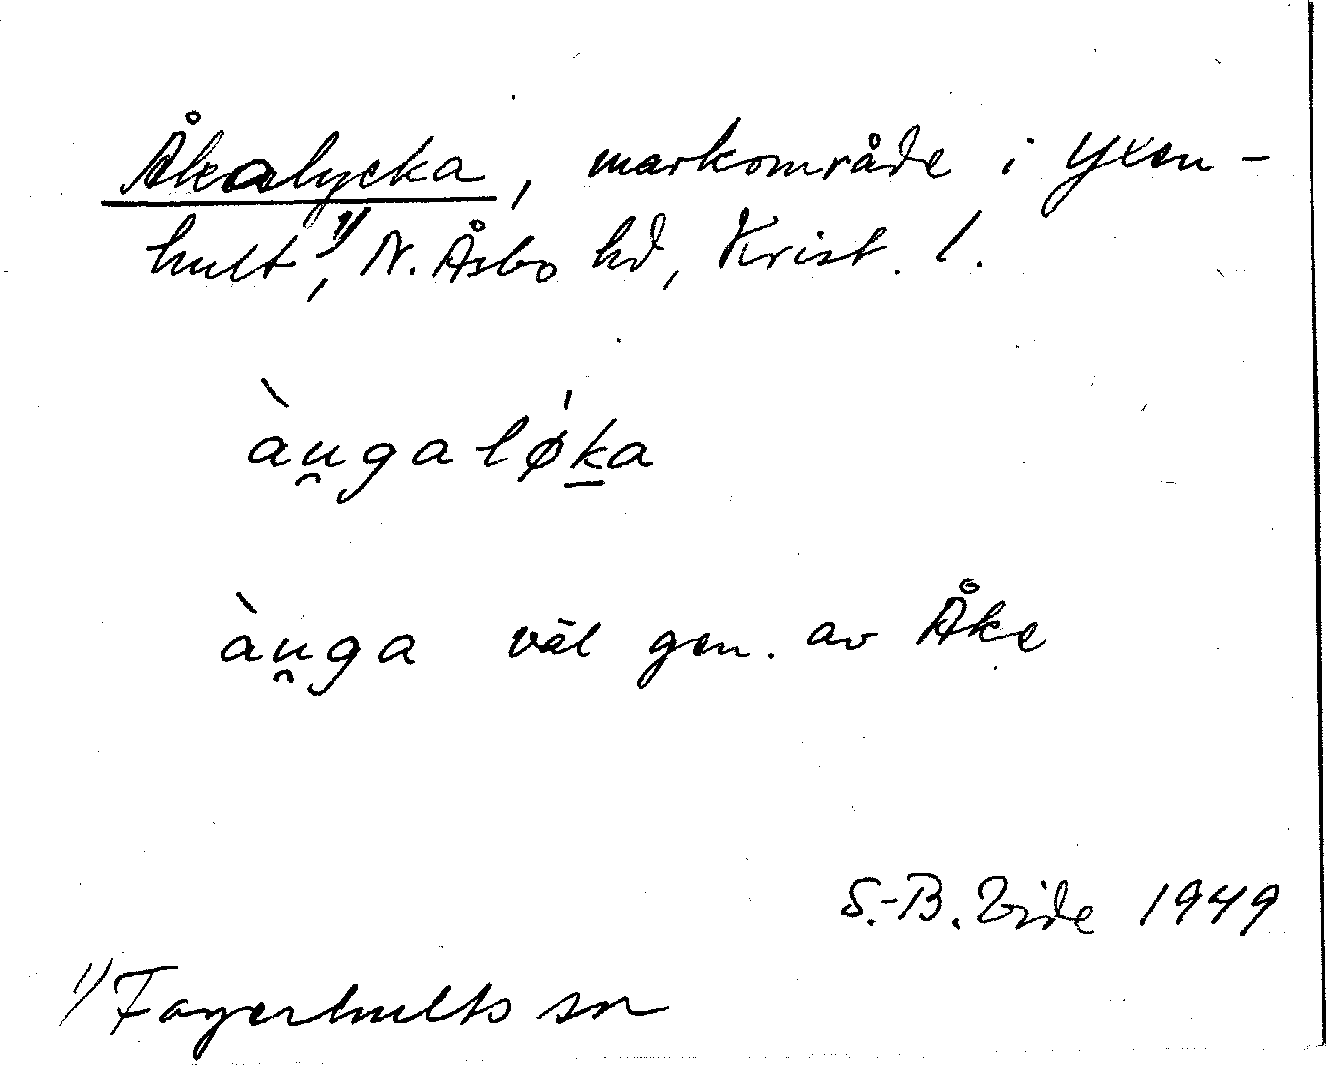 Åkalycka, markområde i Yxen-
hult¹⁾, N. Åsbo hd, Krist. l.
àu̯galø̍ḵa
àu̯ga väl gen. av Åke
S.-B. Vide 1949
¹⁾ Fagerhults sn